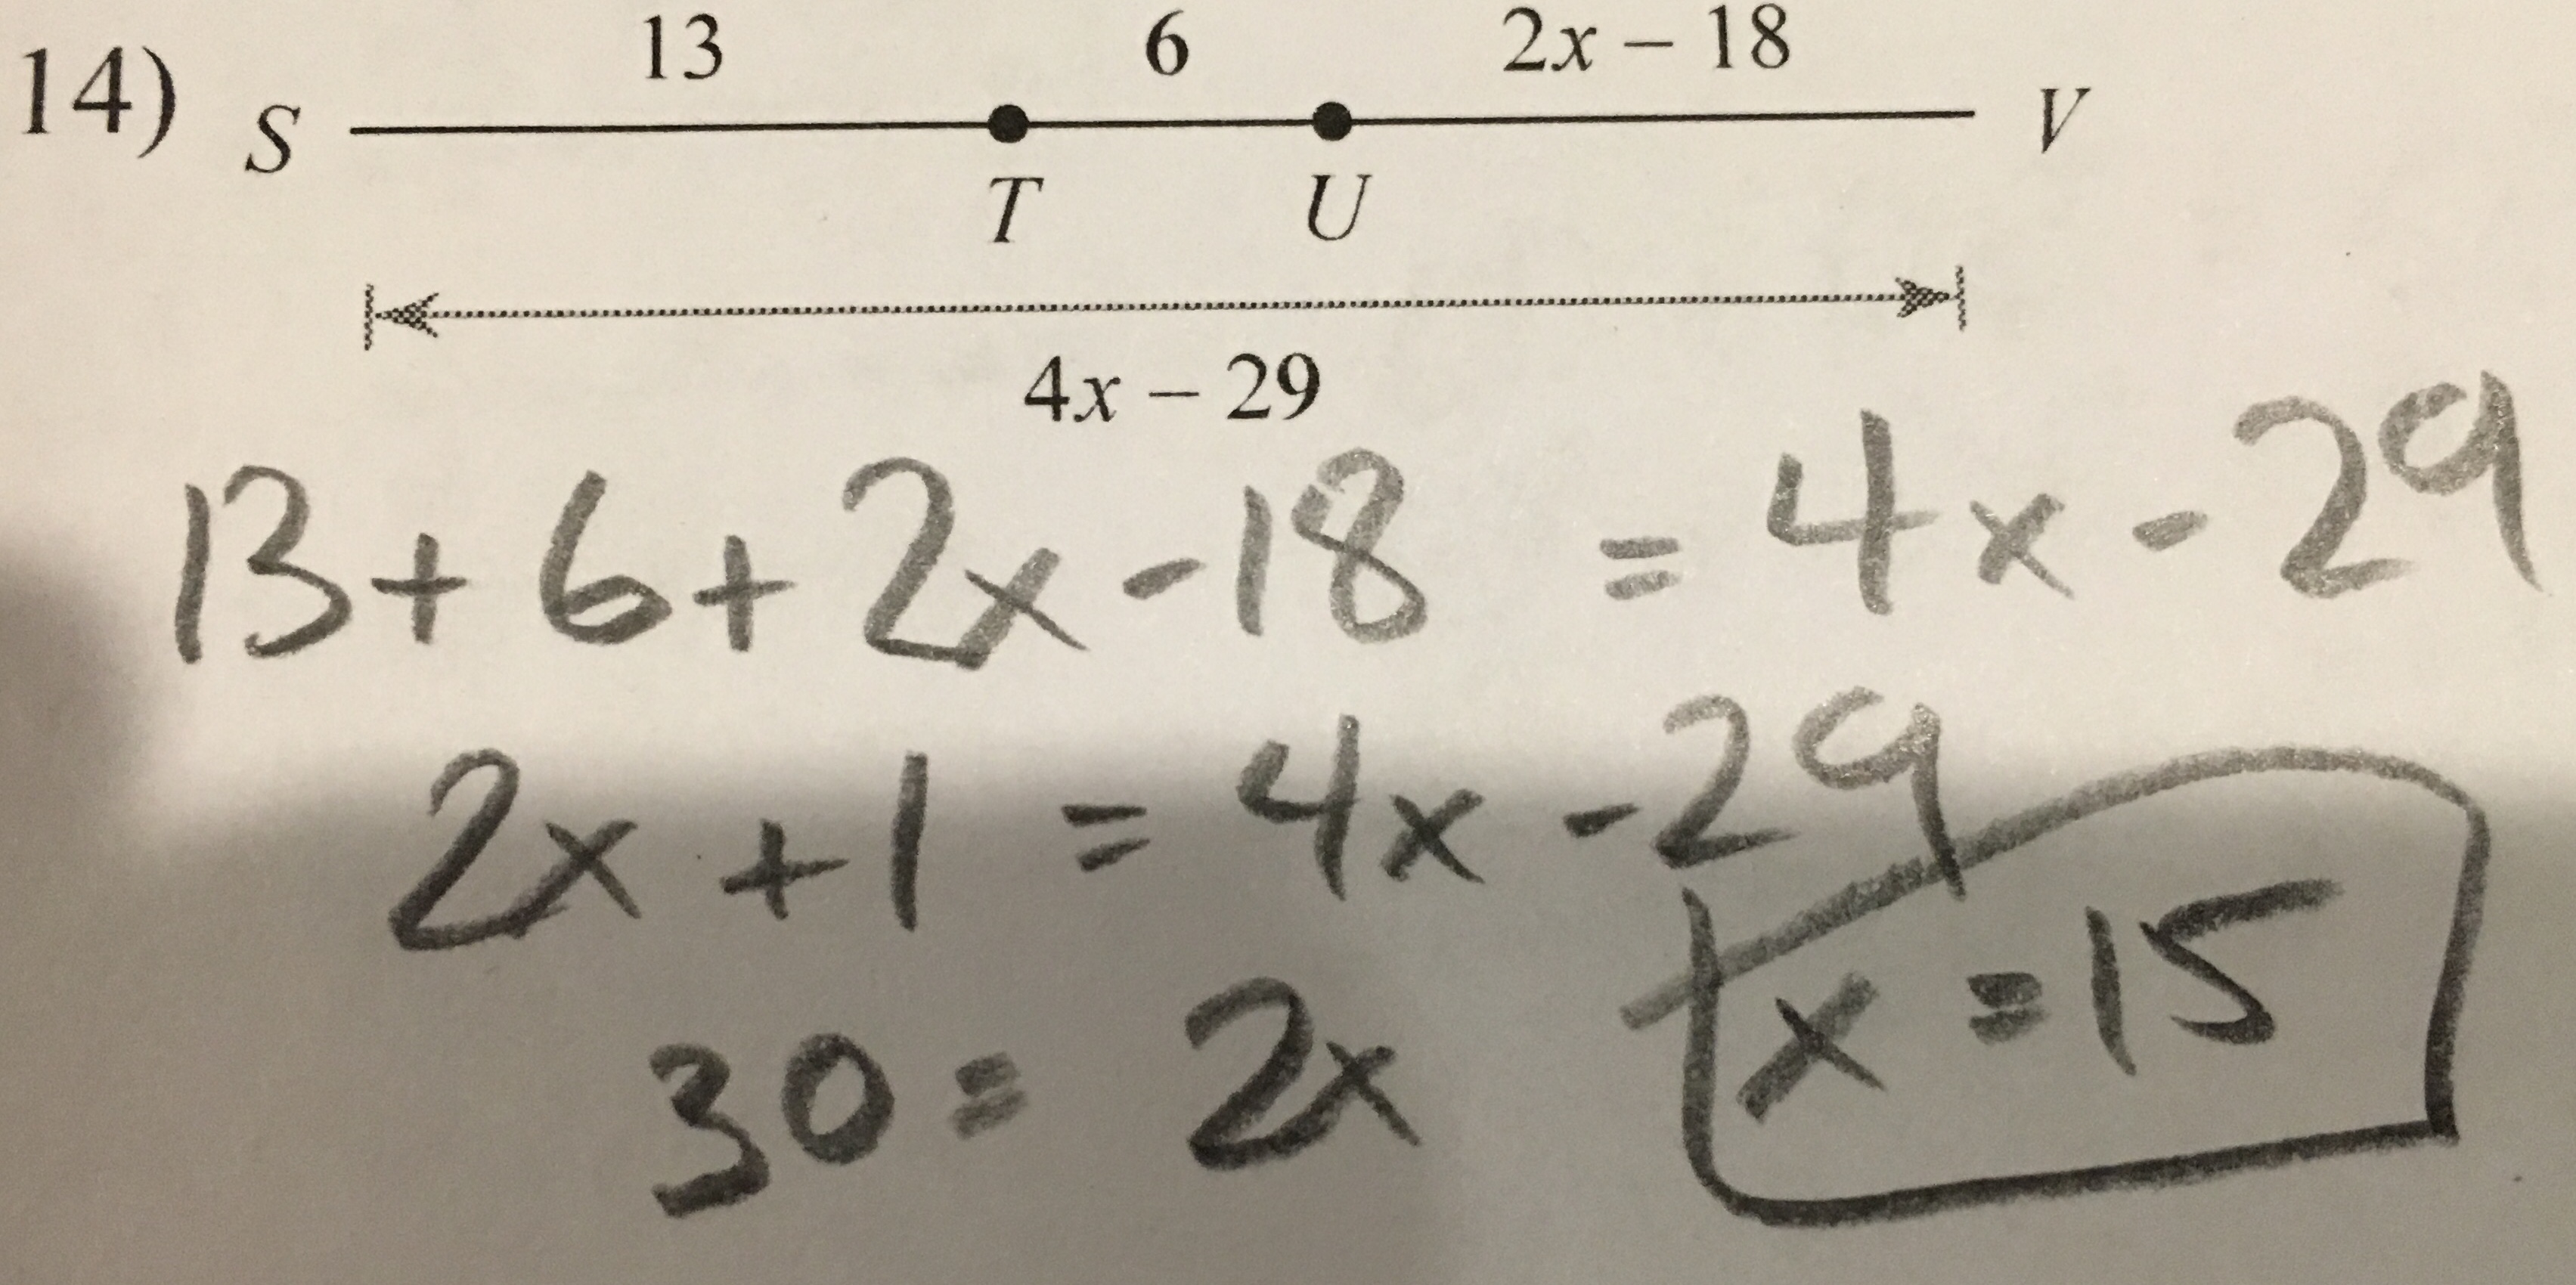 14) S 13 6 2x – 18 V
T U
4x – 29
13 + 6 + 2x - 18 = 4x - 29
2x + 1 = 4x - 29
30 = 2x
x = 15